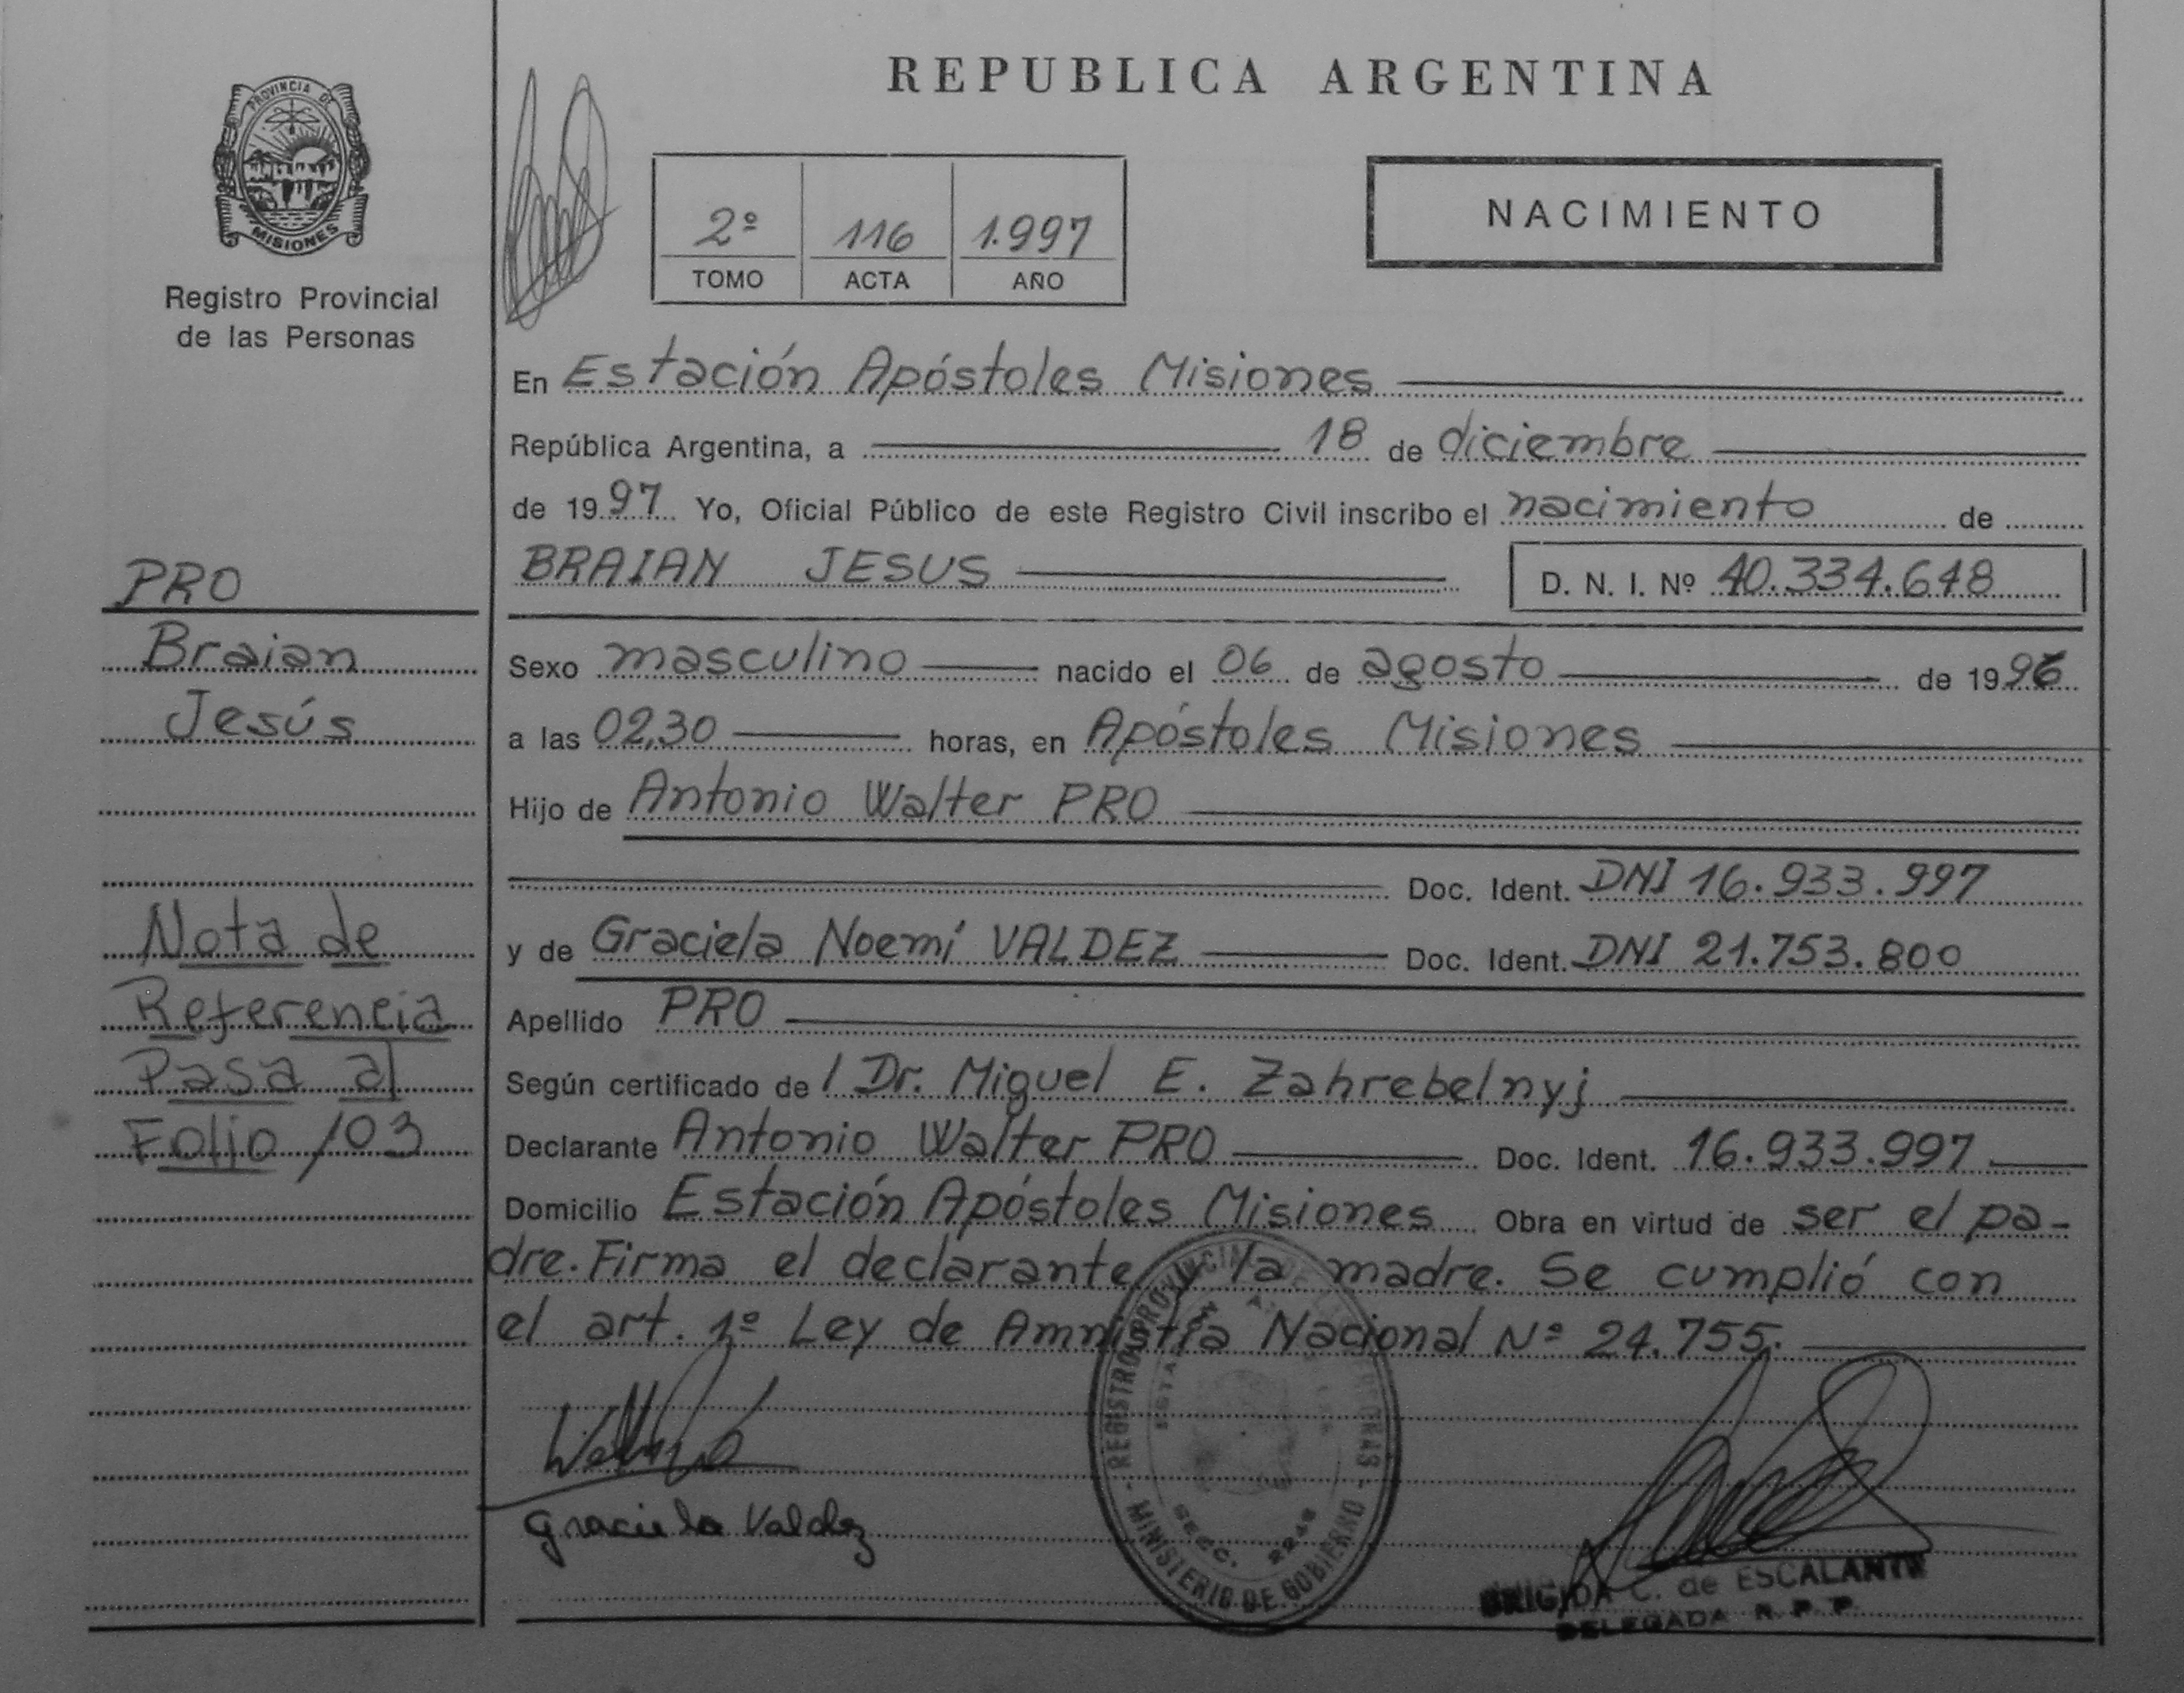 REPUBLICA ARGENTINA
PROVINCIA DE
MISIONES
Registro Provincial
de las Personas
2º 116 1.997
TOMO ACTA AÑO
NACIMIENTO
En Estación Apóstoles Misiones
República Argentina, a 18 de diciembre
de 1997 Yo, Oficial Público de este Registro Civil inscribo el nacimiento de
BRAIAN JESUS D. N. I. Nº 40.334.648
Sexo masculino nacido el 06 de agosto de 1996
a las 02,30 horas, en Apóstoles Misiones
Hijo de Antonio Walter PRO
Doc. Ident. DNI 16.933.997
y de Graciela Noemí VALDEZ Doc. Ident. DNI 21.753.800
Apellido PRO
Según certificado de l Dr. Miguel E. Zahrebelnyj
Declarante Antonio Walter PRO Doc. Ident. 16.933.997
Domicilio Estación Apóstoles Misiones Obra en virtud de ser el pa-
dre. Firma el declarante y la madre. Se cumplió con
el art. 1º Ley de Amnistía Nacional Nº 24.755.
PRO
Braian
Jesús
Nota de
Referencia
Pasa al
Folio 103
Graciela Valdez
REGISTRO PROVINCIAL DE
MINISTERIO DE GOBIERNO
SECC. 2248
BRIGIDA C. de ESCALANTE
DELEGADA R. P. P.